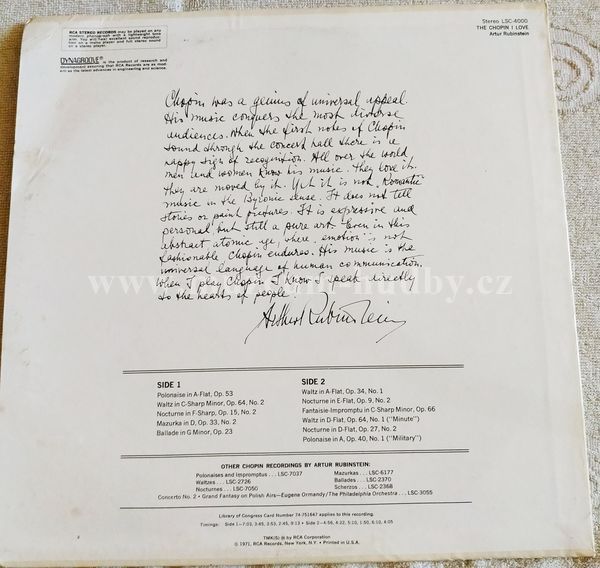 RCA STEREO RECORDS may be played on any
modern phonograph with a lightweight tone
arm. You will hear excellent sound reproduc-
tion on a mono player and full stereo sound
on a stereo player.
DYNAGROOVE® is the product of research and
development assuring that RCA Records are as mod-
ern as the latest advances in engineering and science.
Stereo LSC-4000
THE CHOPIN I LOVE
Artur Rubinstein
Chopin was a genius of universal appeal.
His music conquers the most diverse
audiences. When the first notes of Chopin
sound through the concert hall there is a
happy sigh of recognition. All over the world
men and women know his music. They love it.
They are moved by it. Yet it is not Romantic
music in the Byronic sense. It does not tell
stories or paint pictures. It is expressive and
personal but still a pure art. Even in this
abstract atomic age, where emotion is not
fashionable, Chopin endures. His music is the
universal language of human communication.
When I play Chopin I know I speak directly
to the hearts of people!
Arthur Rubinstein
SIDE 1
Polonaise in A-Flat, Op. 53
Waltz in C-Sharp Minor, Op. 64, No. 2
Nocturne in F-Sharp, Op. 15, No. 2
Mazurka in D, Op. 33, No. 2
Ballade in G Minor, Op. 23
SIDE 2
Waltz in A-Flat, Op. 34, No. 1
Nocturne in E-Flat, Op. 9, No. 2
Fantaisie-Impromptu in C-Sharp Minor, Op. 66
Waltz in D-Flat, Op. 64, No. 1 ("Minute")
Nocturne in D-Flat, Op. 27, No. 2
Polonaise in A, Op. 40, No. 1 ("Military")
OTHER CHOPIN RECORDINGS BY ARTUR RUBINSTEIN:
Polonaises and Impromptus . . . LSC-7037
Waltzes . . . LSC-2726
Nocturnes . . . LSC-7050
Mazurkas . . . LSC-6177
Ballades . . . LSC-2370
Scherzos . . . LSC-2368
Concerto No. 2 • Grand Fantasy on Polish Airs—Eugene Ormandy/The Philadelphia Orchestra . . . LSC-3055
Library of Congress Card Number 74-751647 applies to this recording.
Timings: Side 1—7:03, 3:45, 3:53, 2:45, 9:13 • Side 2—4:56, 4:22, 5:10, 1:50, 6:10, 4:05
TMK(S) ® by RCA Corporation
© 1971, RCA Records, New York, N.Y. • Printed in U.S.A.